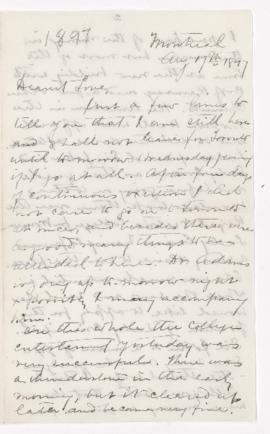 1897
Montreal
Aug 17th 1897
Dearest Lover
Just a few lines to
tell you that I am still here
and shall not leave for Toronto
until to-morrow (Wednesday) evening
if I go at all. After four days
of continuous exertion I did
not care to go on to Toronto
at once, and besides there are
a good many things to be
attended to here. Dr Adams
is going up to-morrow night
& possibly I may accompany
him.
On the whole the College
entertainment yesterday was
very successful. There was
a thunderstorm in the early
morning but it cleared up
later and became very fine.